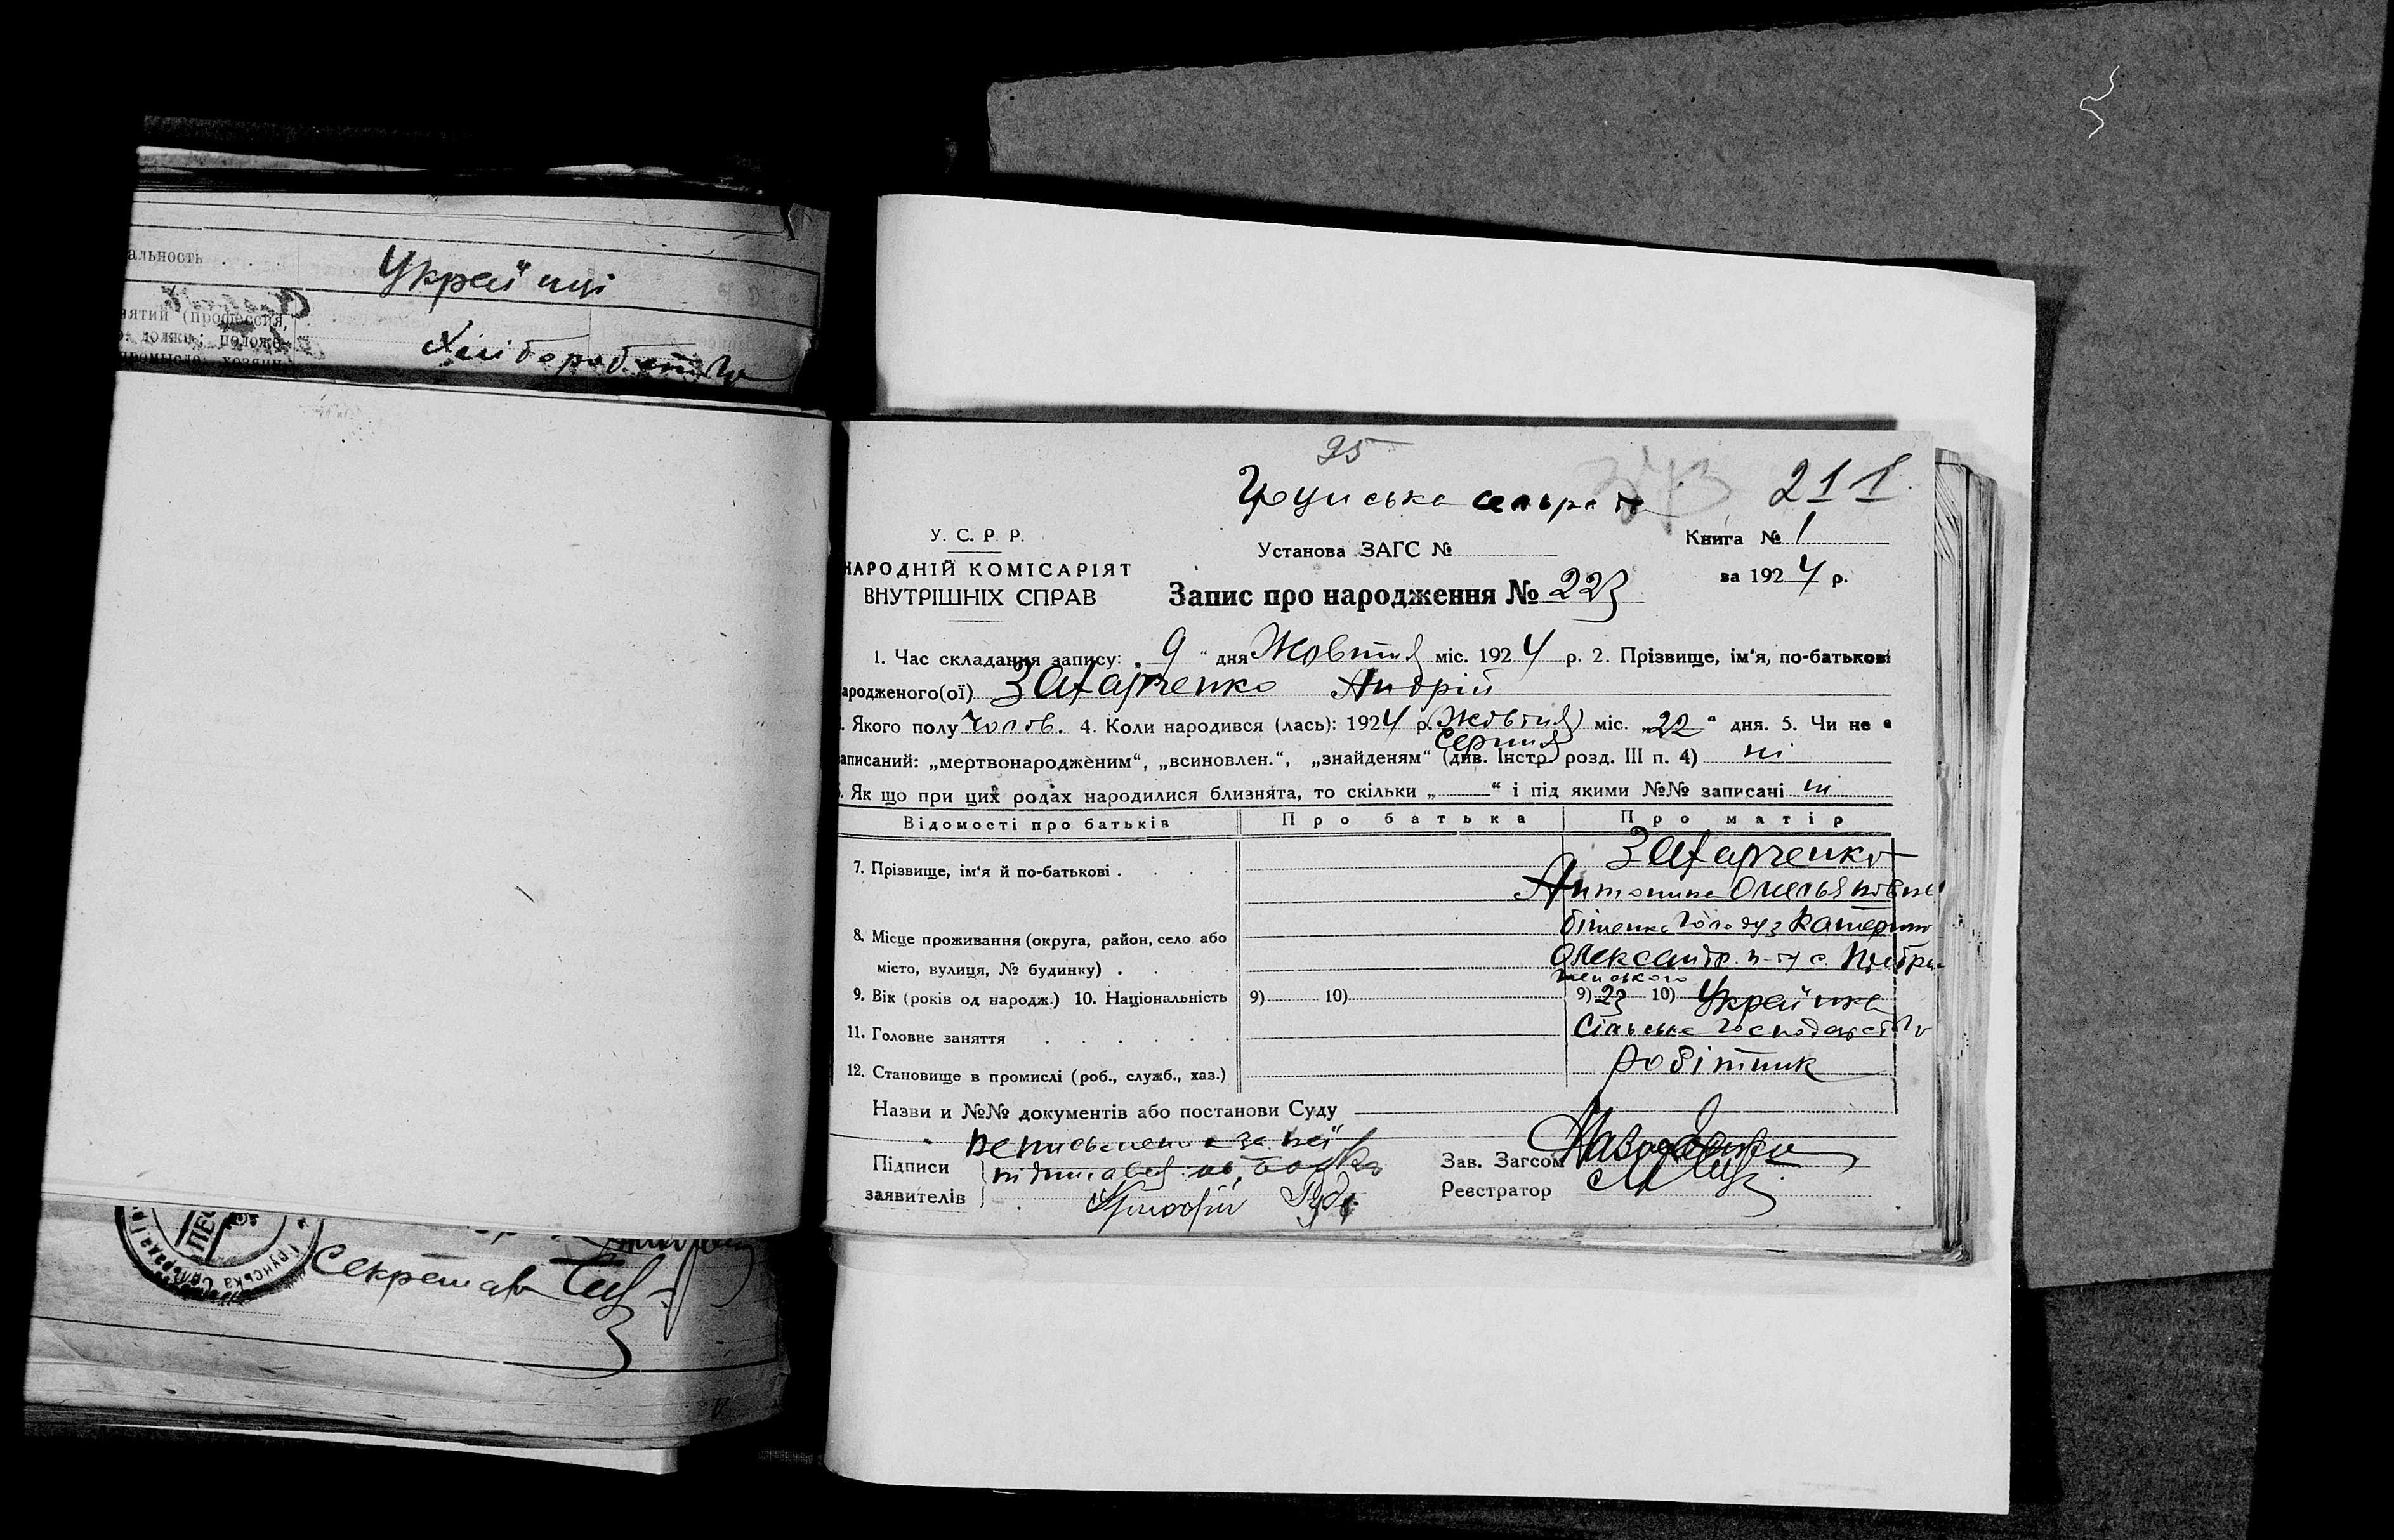 альность . . . Украї нці
нятий (профессия,
о. должн; положе-
промысле: хозяин,
Хліборобство
Грунська Сільрада
Секретар
95
Грунська сельрада 211
У. С. Р. Р.
НАРОДНІЙ КОМІСАРІЯТ
ВНУТРІШНІХ СПРАВ
Установа ЗАГС №
Книга № 1
за 1924 р.
Запис про народження № 223
1. Час складання запису: „ 9 “ дня Жовтня міс. 1924 р. 2. Прізвище, ім‘я, по-батькові
ародженого(ої) Захарченко Андрій
. Якого полу чолов. 4. Коли народився (лась): 1924 р. (Жовтня) міс. „22“ дня. 5. Чи не є
Серпня
аписаний: „мертвонародженим“, „всиновлен.“, „знайденям“ (див. Інстр. розд. III п. 4) ні
. Як що при цих родах народилися близнята, то скільки „ “ і під якими №№ записані ні
Відомості про батьків Про батька Про матір
7. Прізвище, ім‘я й по-батькові . . . . Захарченко
Антонина Омельяновна
8. Місце проживання (округа, район, село або
місто, вулиця, № будинку) . . . .
Олександр. п-ту с.
9. Вік (років од народж.) 10. Національність 9) 10) 9) 23 10) Українка
11. Головне заняття . . . . . . Сільське господарство
12. Становище в промислі (роб., служб., хаз.) робітник
Назви и №№ документів або постанови Суду
неписьменна за неї
Підписи
заявителів
підписався
Григорій
Зав. Загсом
Реєстратор